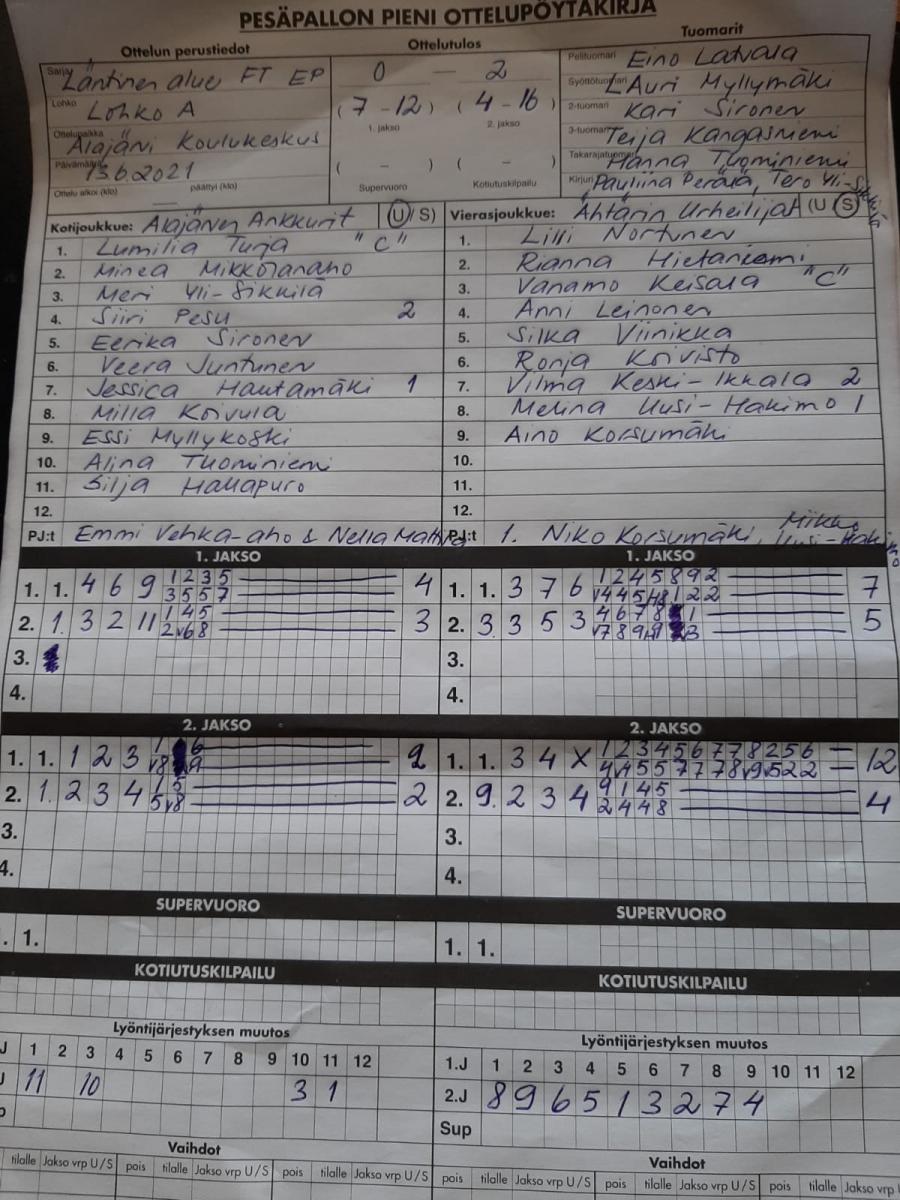 PESÄPALLON PIENI OTTELUPÖYTÄKIRJA
Ottelun perustiedot
Ottelutulos
Tuomarit
Sarja Läntinen alue FT EP
0 — 2
Pelituomari Eino Latvala
Lohko Lohko A
(7 - 12) (4 - 16)
1. jakso 2. jakso
Syöttötuomari Lauri Myllymäki
2-tuomari Kari Sironen
Ottelupaikka Alajärvi Koulukeskus
3-tuomari Teija Kangasniemi
Päivämäärä 13.6.2021
( - ) ( - )
Takarajatuomari Hanna Tuominiemi
Ottelu alkoi (klo) päättyi (klo)
Supervuoro Kotiutuskilpailu
Kirjuri Pauliina Perälä, Tero Yli-Sikkilä
Kotijoukkue: Alajärven Ankkurit (U/S)
Vierasjoukkue: Ähtärin Urheilijat (U/S)
1. Lumilia Turja "C"
1. Lilli Nortunen
2. Minea Mikkolanaho
2. Rianna Hietaniemi
3. Meri Yli-Sikkilä
3. Vanamo Keisala "C"
4. Siiri Pesu 2
4. Anni Leinonen
5. Eerika Sironen
5. Silka Viinikka
6. Veera Juntunen
6. Ronja Koivisto
7. Jessica Hautamäki 1
7. Vilma Keski-Ikkala 2
8. Milla Koivula
8. Melina Uusi-Hakimo 1
9. Essi Myllykoski
9. Aino Korsumäki
10. Alina Tuominiemi
10.
11. Silja Hallapuro
11.
12.
12.
PJ:t Emmi Vehka-aho & Nella
PJ:t 1. Niko Korsumäki, Mikko Uusi-Hakimo
1. JAKSO
1. JAKSO
1. 1. 4 6 9 1 2 3 5 4
3 5 5 7
1. 1. 3 7 6 1 2 4 5 8 9 2 7
2. 1. 3 2 11 1 4 5 3
2 v6 8
2. 3. 3 5 3 4 6 7 8 1 5
3.
3.
4.
4.
2. JAKSO
2. JAKSO
1. 1. 1 2 3 1 6 2
1. 1. 3 4 X 1 2 3 4 5 6 7 7 8 2 5 6 12
4 v4 5 5 7 7 7 8 v9 v5 2 2
2. 1. 2 3 4 1 5 2
5 v8
2. 9. 2 3 4 9 1 4 5 4
2 4 4 8
3.
3.
4.
4.
SUPERVUORO
SUPERVUORO
. 1.
1. 1.
KOTIUTUSKILPAILU
KOTIUTUSKILPAILU
Lyöntijärjestyksen muutos
Lyöntijärjestyksen muutos
J 1 2 3 4 5 6 7 8 9 10 11 12
1.J 1 2 3 4 5 6 7 8 9 10 11 12
J 11 10 3 1
2.J 8 9 6 5 1 3 2 7 4
Sup
Vaihdot
Vaihdot
tilalle Jakso vrp U/S pois tilalle Jakso vrp U/S pois tilalle Jakso vrp U/S
pois tilalle Jakso vrp U/S pois tilalle Jakso vrp U/S pois tilalle Jakso vrp